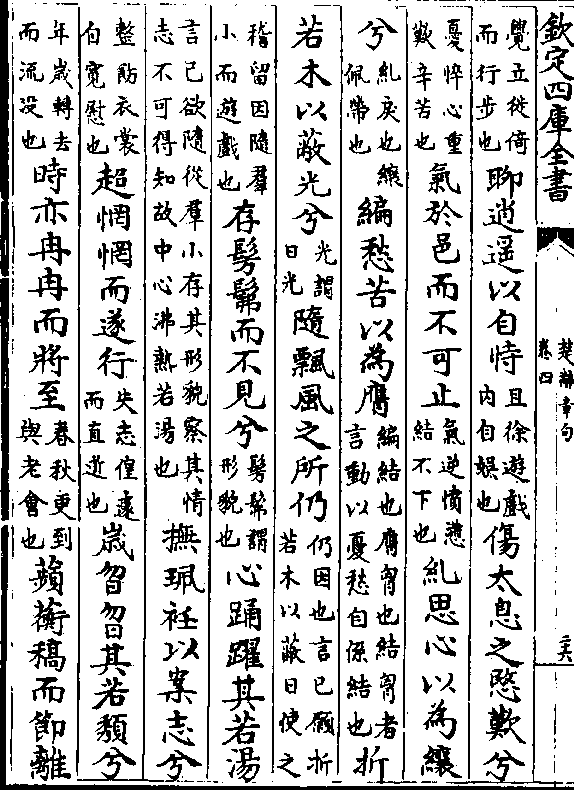 欽定四庫全書
楚辭章句
卷四
二六
覺立徙倚而行步也聊逍遥以自恃且徐遊戲内自娱也傷太息之愍歎兮
憂悴心重歎辛苦也氣於邑而不可止氣逆憤懣結不下也糺思心以為纕
兮糺戾也纕佩帶也編愁苦以為膺編結也膺胷也結胷者言動以憂愁自係結也折
若木以蔽光兮光謂日光隨飄風之所仍仍因也言已願折若木以蔽日使之
稽留因隨羣小而遊戲也存髣髴而不見兮髣髴謂形貌也心踊躍其若湯
言已欲隨從羣小存其形貌察其情志不可得知故中心沸熱若湯也撫珮衽以案志兮
整飭衣裳自寛慰也超惘惘而遂行失志偟遽而直逝也歲曶曶其若頽兮
年歲轉去而流没也時亦冉冉而將至春秋更到與老會也蘋蘅稿而節離